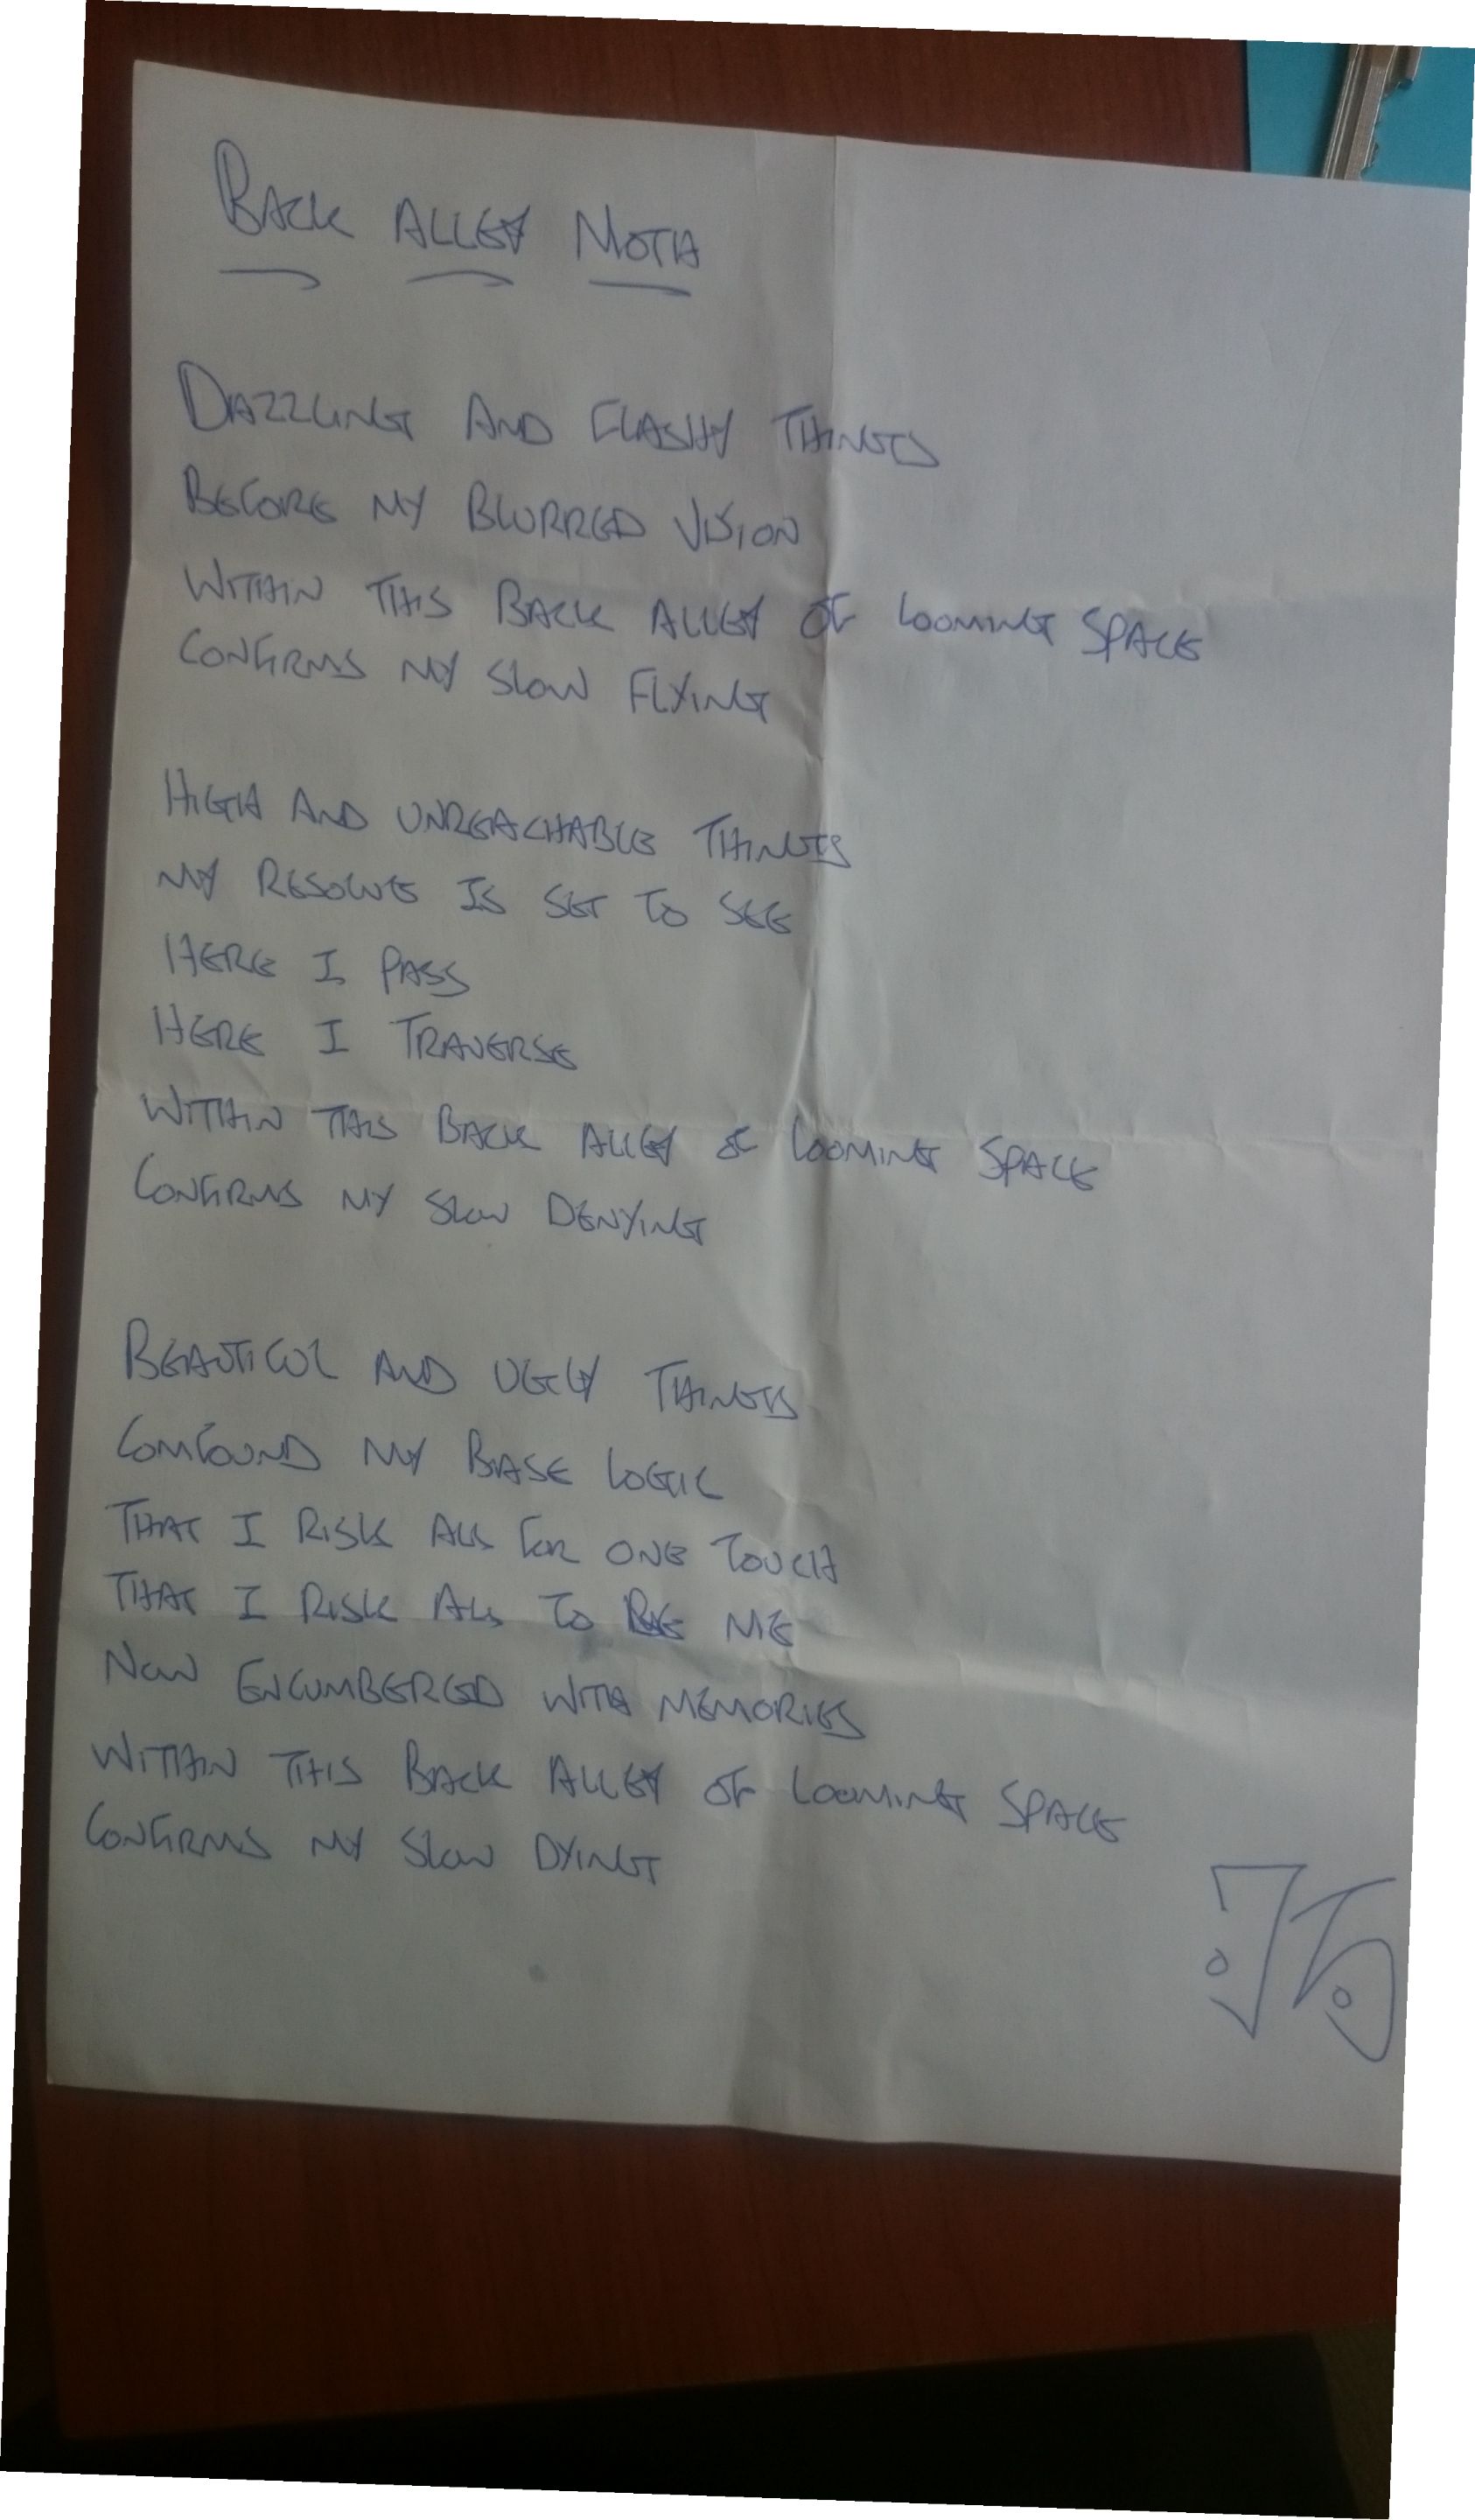 BACK ALLEY MOTH
DAZZLING AND FLASHY THINGS
BEFORE MY BLURRED VISION
WITHIN THIS BACK ALLEY OF LOOMING SPACE
CONFIRMS MY SLOW FLYING
HIGH AND UNREACHABLE THINGS
MY RESOLVE IS SET TO SEE
HERE I PASS
HERE I TRAVERSE
WITHIN THIS BACK ALLEY OF LOOMING SPACE
CONFIRMS MY SLOW DENYING
BEAUTIFUL AND UGLY THINGS
CONFOUND MY BASE LOGIC
THAT I RISK ALL FOR ONE TOUCH
THAT I RISK ALL TO BE ME
NOW ENCUMBERED WITH MEMORIES
WITHIN THIS BACK ALLEY OF LOOMING SPACE
CONFIRMS MY SLOW DYING